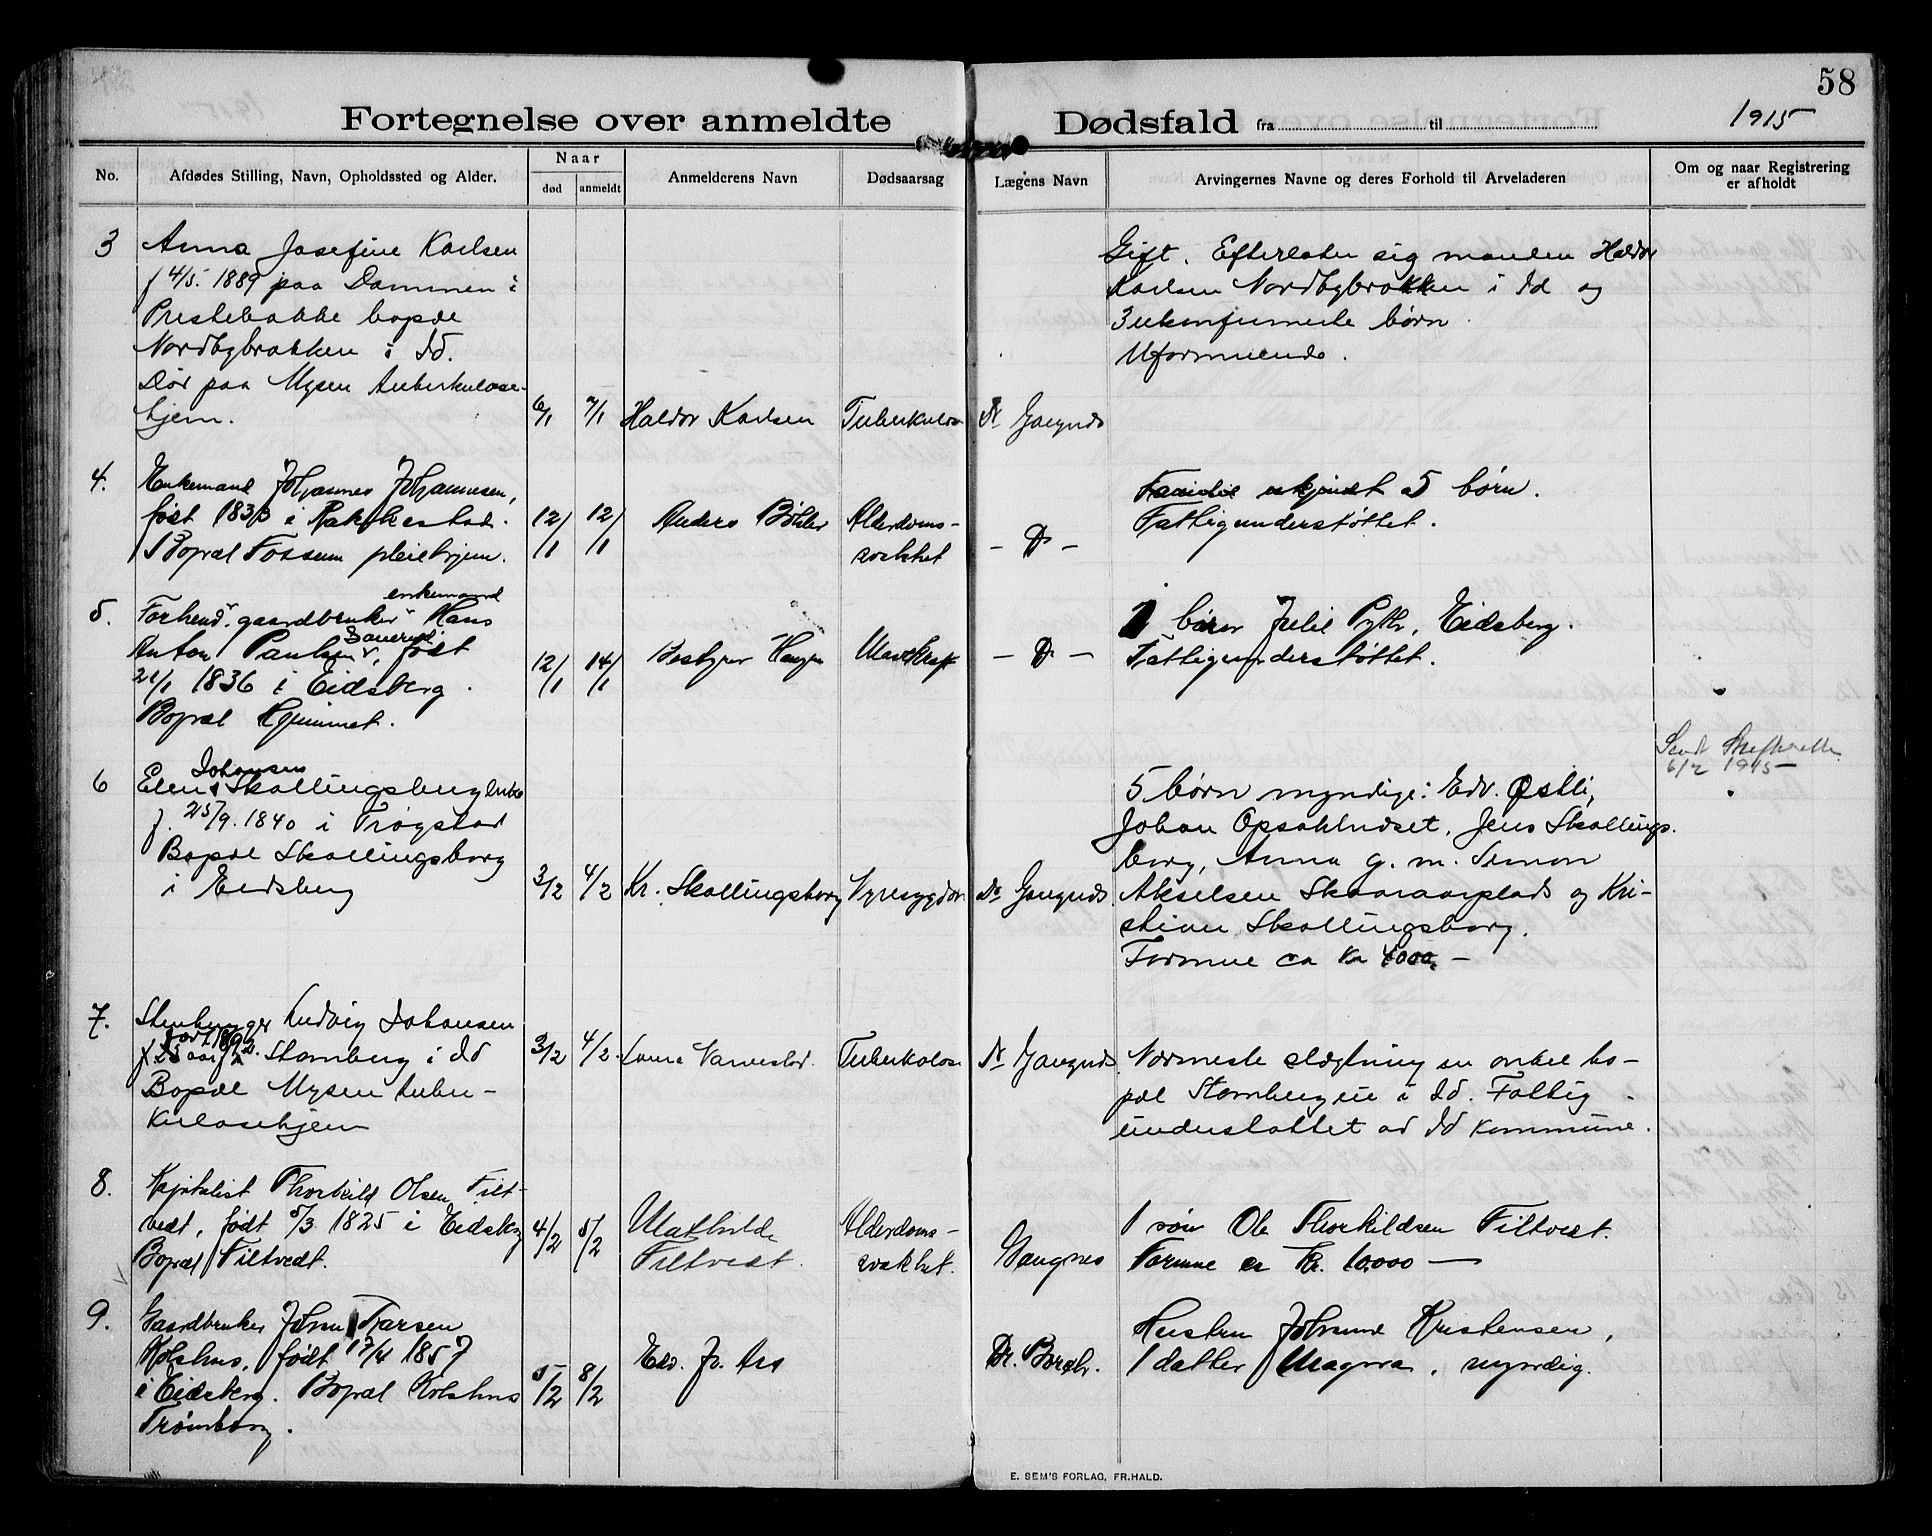 58
Fortegnelse over anmeldte Dødsfald fra til 1915
No.
Afdødes Stilling, Navn, Opholdssted og Alder.
Naar
død anmeldt
Anmelderens Navn
Dødsaarsag
Lægens Navn
Arvingernes Navne og deres Forhold til Arveladeren
Om og naar Registrering
er afholdt
3 Anna Josefine Karlsen
f 4/5. 1889 paa Dammen i
Prestebakke bopæl
Nordbybrakken i Id.
Dør paa Mysen Tuberkulose-
hjem. 6/1 7/1 Haldor Karlsen Tuberkulose Dr Gaugnæs
Gift. Efterlater sig manden Haldor
Karlsen Nordbybrakken i Id og
3 ukonfirmerte børn
Uformuende.
4. Enkemand Johannes Johannesen,
født 1833 i Rakkestad.
Bopæl Fossum pleiehjem.
12/1 12/1 Anders Böhler Alderdoms-
svakhet
- D -
Familie ukjendt 5 børn.
Fattigunderstøttet.
5. Forhenv. gaardbruker enkemand Hans
Anton Paulsen Sauerud, født
21/1 1836 i Eidsberg.
Bopæl Hjemmet.
12/1 14/1 Bestyrer Haugen Mavekræft - D -
1 barn Julie Pythr, Eidsberg.
Fattigunderstøttet.
6 Elen Johansen Skallingsberg enke
f. 25/9. 1840 i Trøgstad
Bopæl Skallingsborg
i Eidsberg
3/2 4/2 Kr. Skallingsborg Nyresygdom Dr Gaugnæs
5 børn myndige: Edv. Østli,
Johan Opsahludset, Jens Skallings-
borg, Anna g. m. Simon
Akselsen Skaaraarplads og Kri-
stian Skallingsborg.
Formue ca Kr 4000,-
Sendt Skifteretten
6/2 1915
7. Stenhugger Ludvig Johansen
født 1892. Stamberg i Id
Bopæl Mysen tuber-
kulosehjem
3/2 4/2. Laura Varnestad. Tuberkulose Dr Gaugnæs
Nærmeste slægtning en onkel bo-
pæl Stambergeie i Id. Fattig-
understøttet av Id kommune.
8. Kapitalist Thorkild Olsen Filt-
vedt, født 5/3 1825 i Eidsberg
Bopæl Filtvedt.
4/2 5/2 Mathilde
Filtvedt.
Alderdoms-
svakhet.
Gaugnes
1 søn Ole Thorkildsen Filtvedt.
Formue ca Kr. 10.000 —
9. Gaardbruker Johan Larsen
Kolshus, født 17/4 1857
i Eidsberg. Bopæl Kolshus
Trømborg.
5/2 8/2 Edv. Jr. Aas Dr. Borchr.
Hustru Johanne Kristensen,
1 datter Magna, myndig.
E. SEM'S FORLAG, FR.HALD.